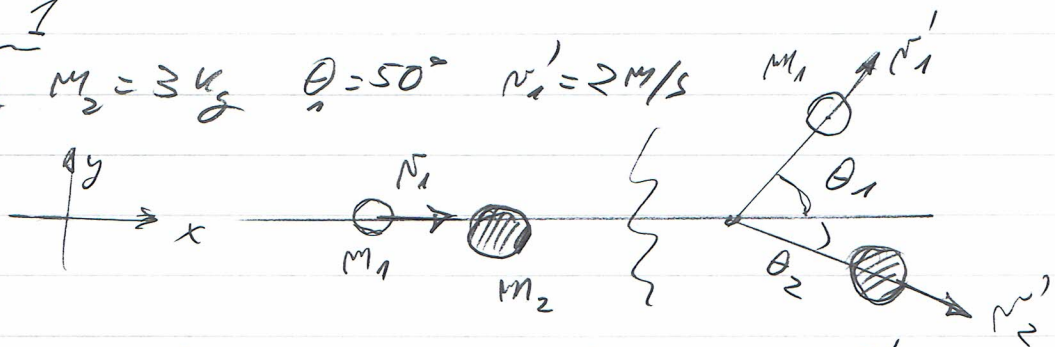 1
m₂ = 3 kg θ₁ = 50° v₁' = 2 m/s
m₁ v₁'
y
v₁
θ₁
x
m₁
m₂
θ₂
v₂'